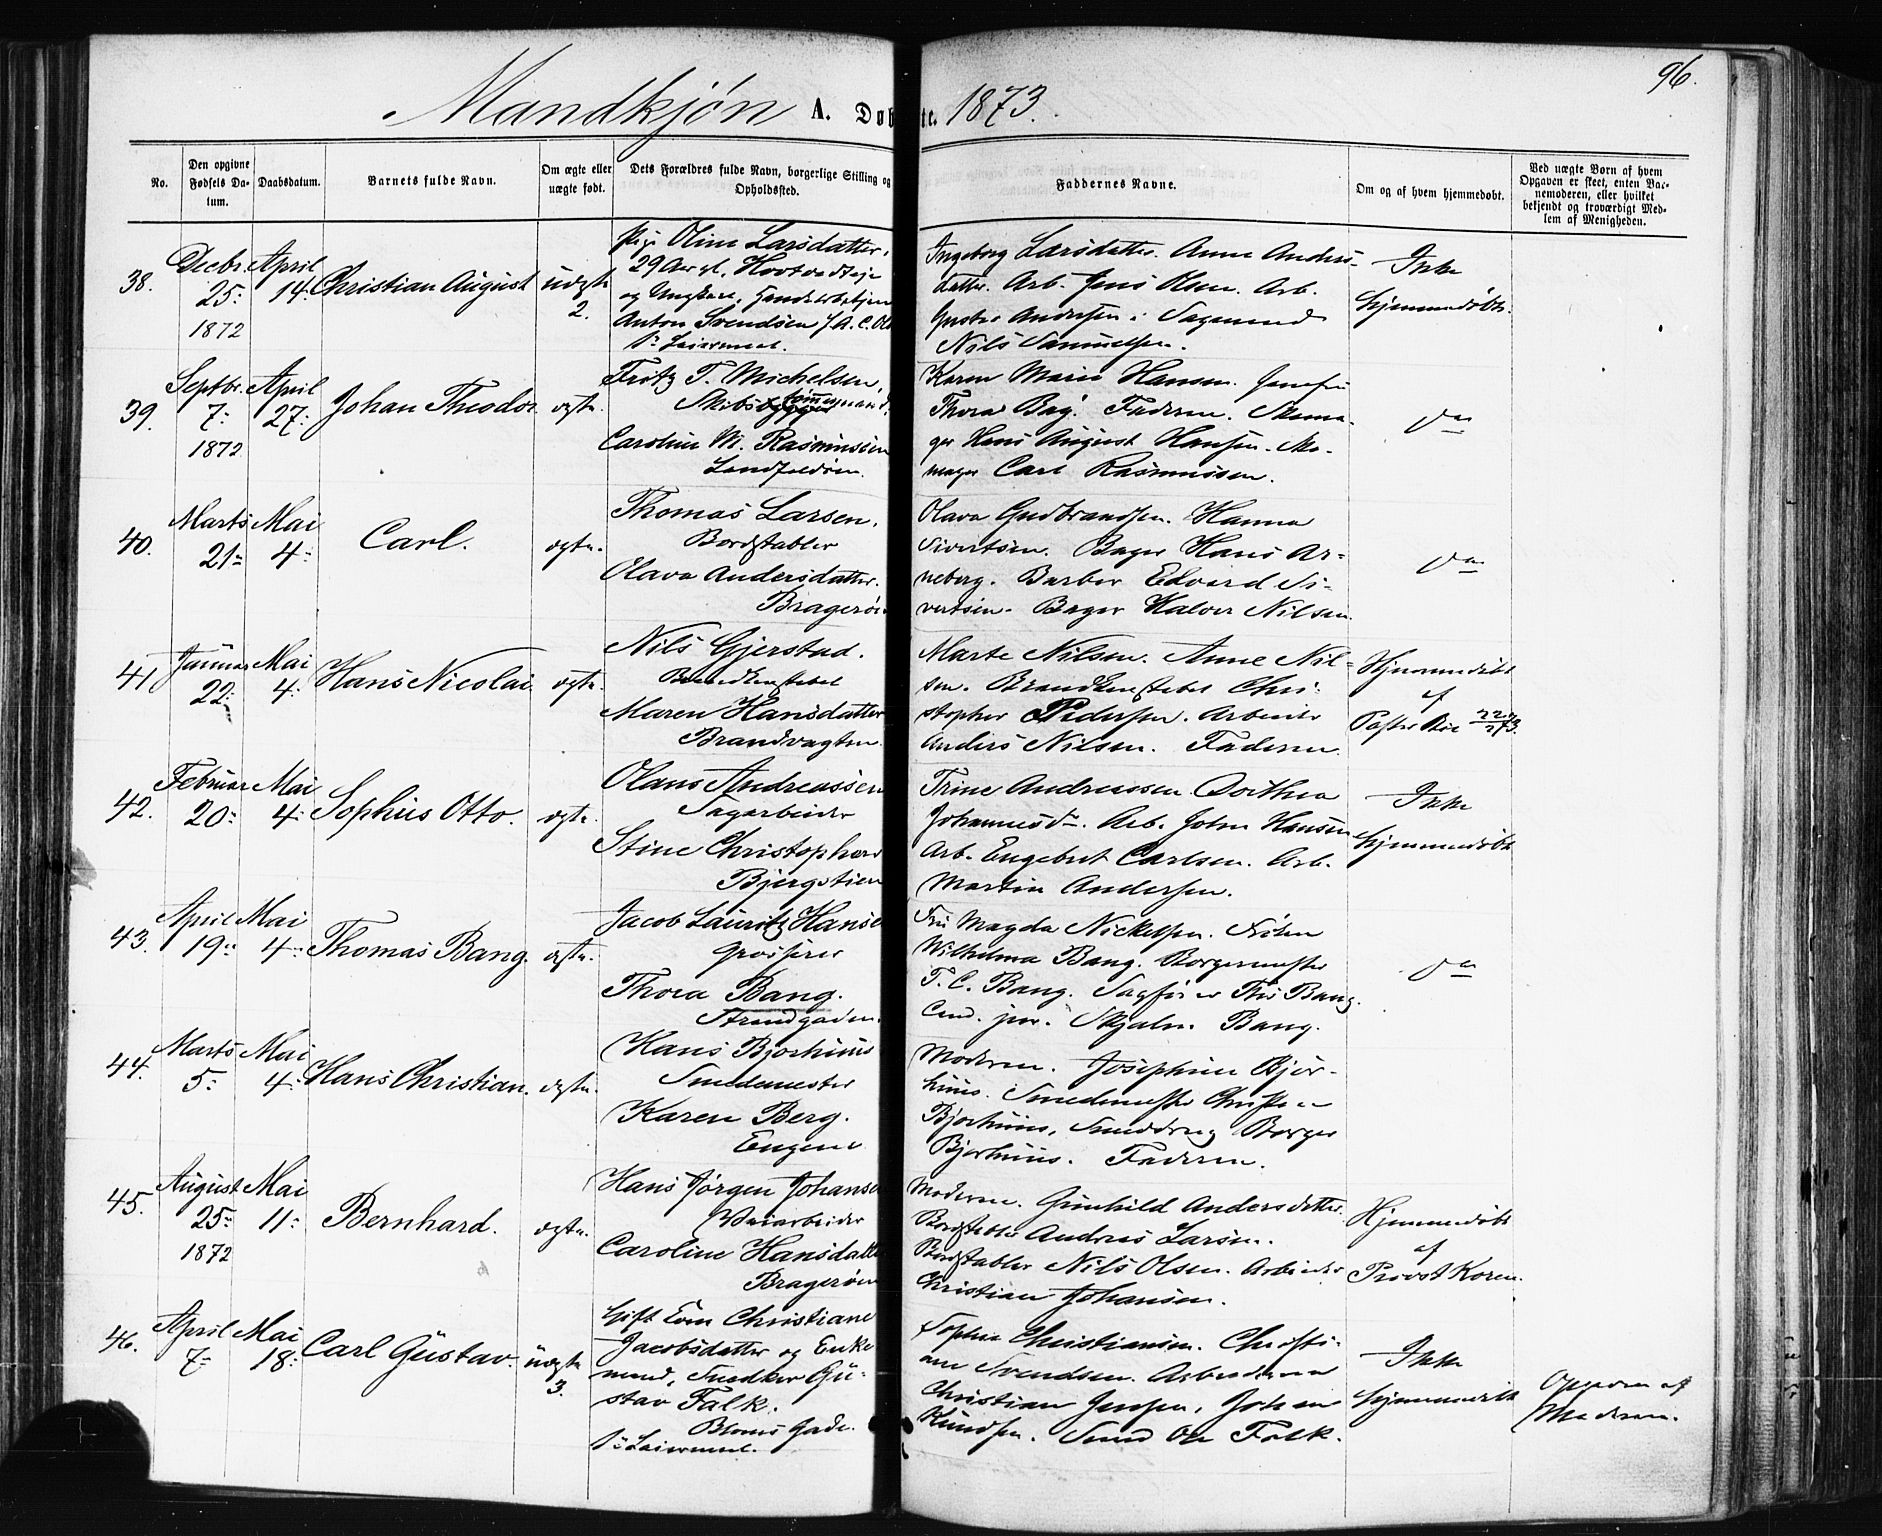 96.
Mandkjøn A. Døbte. 1873.
No.
Den opgivne Fødsels Da-
tum.
Daabsdatum.
Barnets fulde Navn.
Om ægte eller
uægte født.
Dets Forældres fulde Navn, borgerlige Stilling og
Opholdssted.
Faddernes Navne.
Om og af hvem hjemmedøbt.
Ved uægte Børn af hvem
Opgaven er skeet, enten Bar-
nemoderen, eller hvilket
bekjendt og troværdigt Med-
lem af Menigheden.
38.
Decbr.
25:
1872
April
14:
Christian August
uægte
2.
Pige Oline Larsdatter,
29 Aar gl.
og Ungkarl,
Anton Svendsen
1ste Leiermaal.
Ingeborg Larsdatter. Anne Anders-
datter. Arb. Jens Olsen. Arb.
Gustav Andersen.
Nils Samuelsen.
Ikke
hjemmedøbt.
39.
Septbr.
7:
1872
April
27:
Johan Theodor
ægte.
Fritz T. Michelsen,
Skibstømmermand.
Caroline M. Rasmussen
Landfaldøen.
Karen Marie Hansen. Jomfru
Thora Bag. Faderen. Skoma-
ger Hans August Hansen. Sko-
mager Carl Rasmussen.
do
40.
Marts
21:
Mai
4:
Carl.
ægte.
Thomas Larsen,
Bordstabler
Olava Andersdatter.
Bragerøen
Olava Gudbrandsen. Hanna
Sivertsen. Bager Hans Ar-
neberg. Barber Edvard Si-
vertsen. Bager Halvor Nilsen.
do
41.
Januar
22:
Mai
4:
Hans Nicolai
ægte.
Nils Gjerstad.
Brandkonstabel
Maren Hansdatter
Brandvagten.
Marte Nilsen. Anne Nil-
sen. Brandkonstabel Chri-
stopher Pedersen. Arbeider
Anders Nilsen. Faderen.
Hjemmedøbt
af
Pastor
42.
Februar
20:
Mai
4:
Sophus Otto.
ægte.
Olaus Andreassen
Sagarbeider
Stine Christophers
Bjergstien
Trine Andreassen. Dorthea
Johannesd. Arb. John Hansen
Arb. Engebret Carlsen. Arb.
Martin Andersen.
Ikke
hjemmedøbt
43.
April
19:
Mai
4:
Thomas Bang.
ægte.
Jacob Lauritz Hanse
Grosserer
Thora Bang.
Strandgaden.
Fru Magda Nickelsen. Frøken
Wilhelma Bang. Borgermester
T. C. Bang. Sagfører Ths Bang.
Cand. jur. Skjalm Bang.
do
44.
Marts
5:
Mai
4:
Hans Christian.
ægte.
Hans Bjorhuus
Smedemester
Karen Berg.
Engene
Moderen. Josephine Bjor-
huus. Smedemester
Bjorhuus, Smeddreng Borger
Bjorhuus. Faderen.
45.
August
25:
1872
Mai
11:
Bernhard.
ægte.
Hans Jørgen Johanse
Veiarbeider
Caroline Hansdatte
Bragerøen
Moderen. Gunhild Andersdatter.
Bordstabler Andreas Larsen.
Bordstabler Nils Olsen. Arbeider
Christian Johansen.
Hjemmedøbt
af
Provst Koren.
46.
April
7:
Mai
18:
Carl Gustav.
uægte
3.
Gift Kone Christiane
Jacobsdatter og Enke-
mand, Snedker Gu-
stav Falk.
Bloms Gade.
1ste Leiermaal.
Sophie Christiansen. Christi-
ane Svendsen. Arbeiderne
Christian Jensen, Johan
Knudsen. Falk.
Ikke
hjemmedøbt
Opgaven af
Moderen.